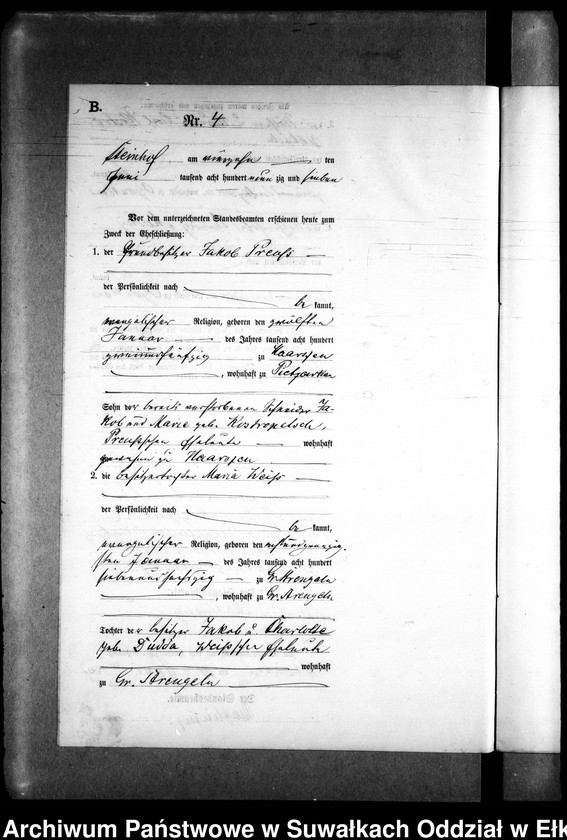 B.
Nr. 4.
Steinhof am vierzehn ten
Juni tausend acht hundert neun zig und sieben
Vor dem unterzeichneten Standesbeamten erschienen heute zum
Zweck der Eheschließung:
1. der Grundbesitzer Jakob Preuß
der Persönlichkeit nach
be kannt,
evangelischer Religion, geboren den zwölften
Januar des Jahres tausend acht hundert
zweiundfünfzig zu Haarszen
, wohnhaft zu Pietzarken
Sohn der bereits verstorbenen Schneider Ja-
kob und Marie geb. Kostropetsch,
Preuß'schen Eheleute wohnhaft
gewesen zu Haarszen
2. die Besitzertochter Maria Weiß
der Persönlichkeit nach
be kannt,
evangelischer Religion, geboren den
sten Januar des Jahres tausend acht hundert
siebenundsechszig zu Gr. Strengeln
, wohnhaft zu Gr. Strengeln
Tochter der Besitzer Jakob u. Charlotte
geb. Dudda, Weiß'schen Eheleute
wohnhaft
zu Gr. Strengeln
Archiwum Państwowe w Suwałkach Oddział w Ełk